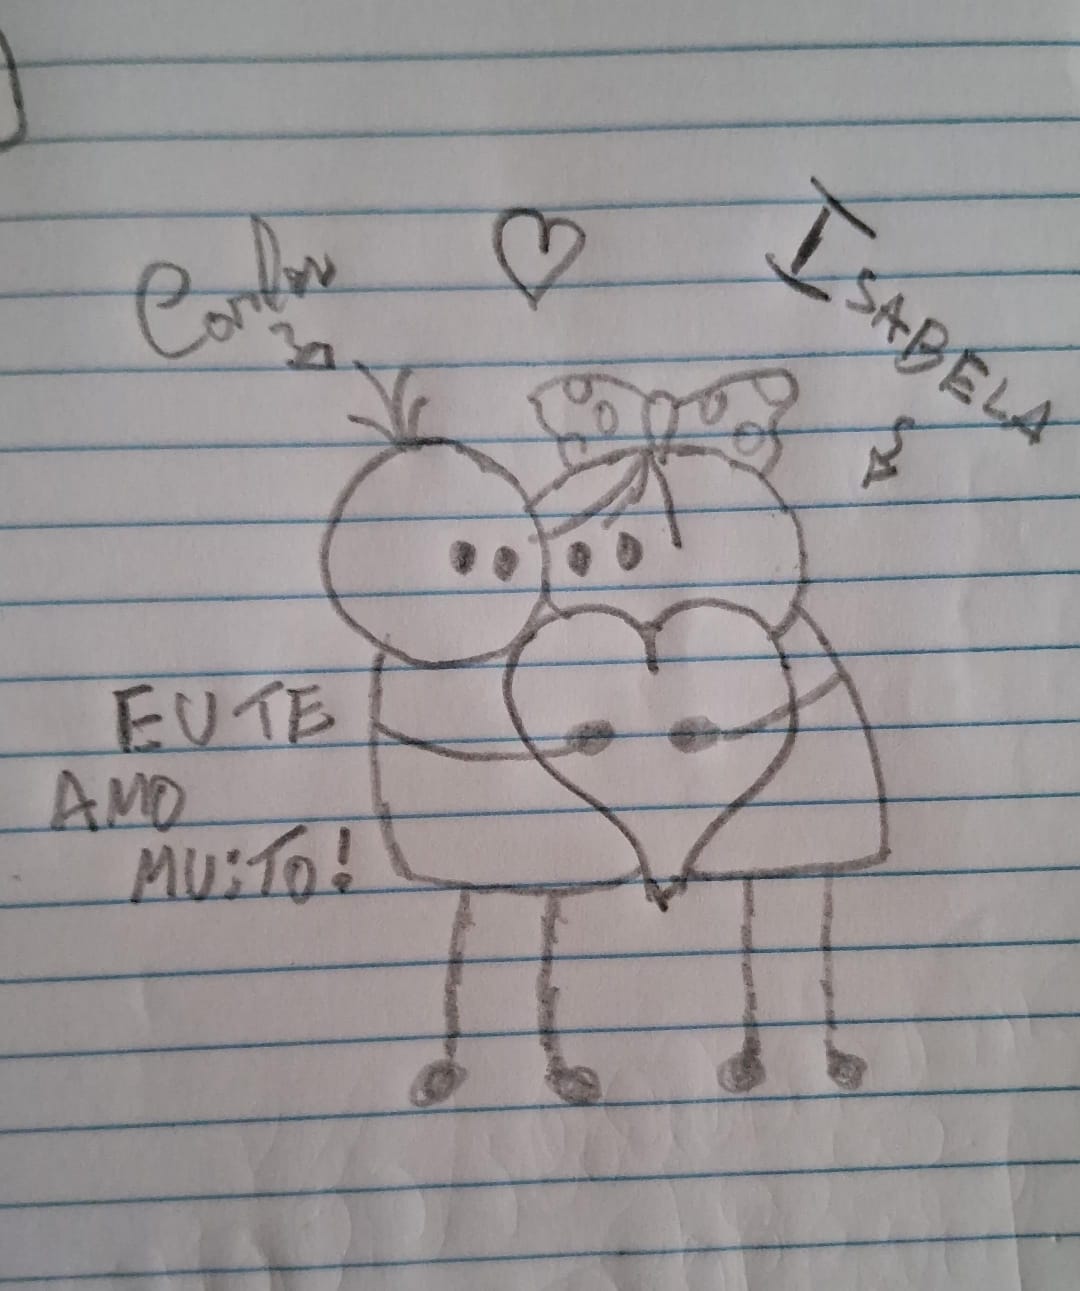 Carlos
ISABELA
EU TE
AMO
MUiTO!